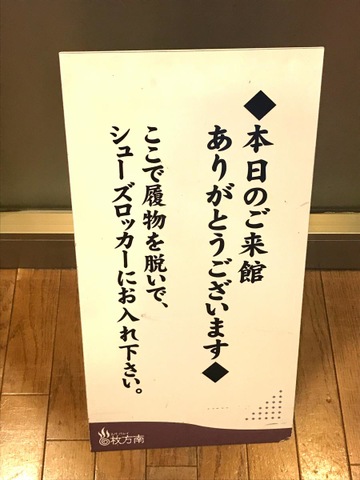 ◆本日のご来館
ありがとうございます◆
ここで履物を脱いで、
シューズロッカーにお入れ下さい。
枚方南